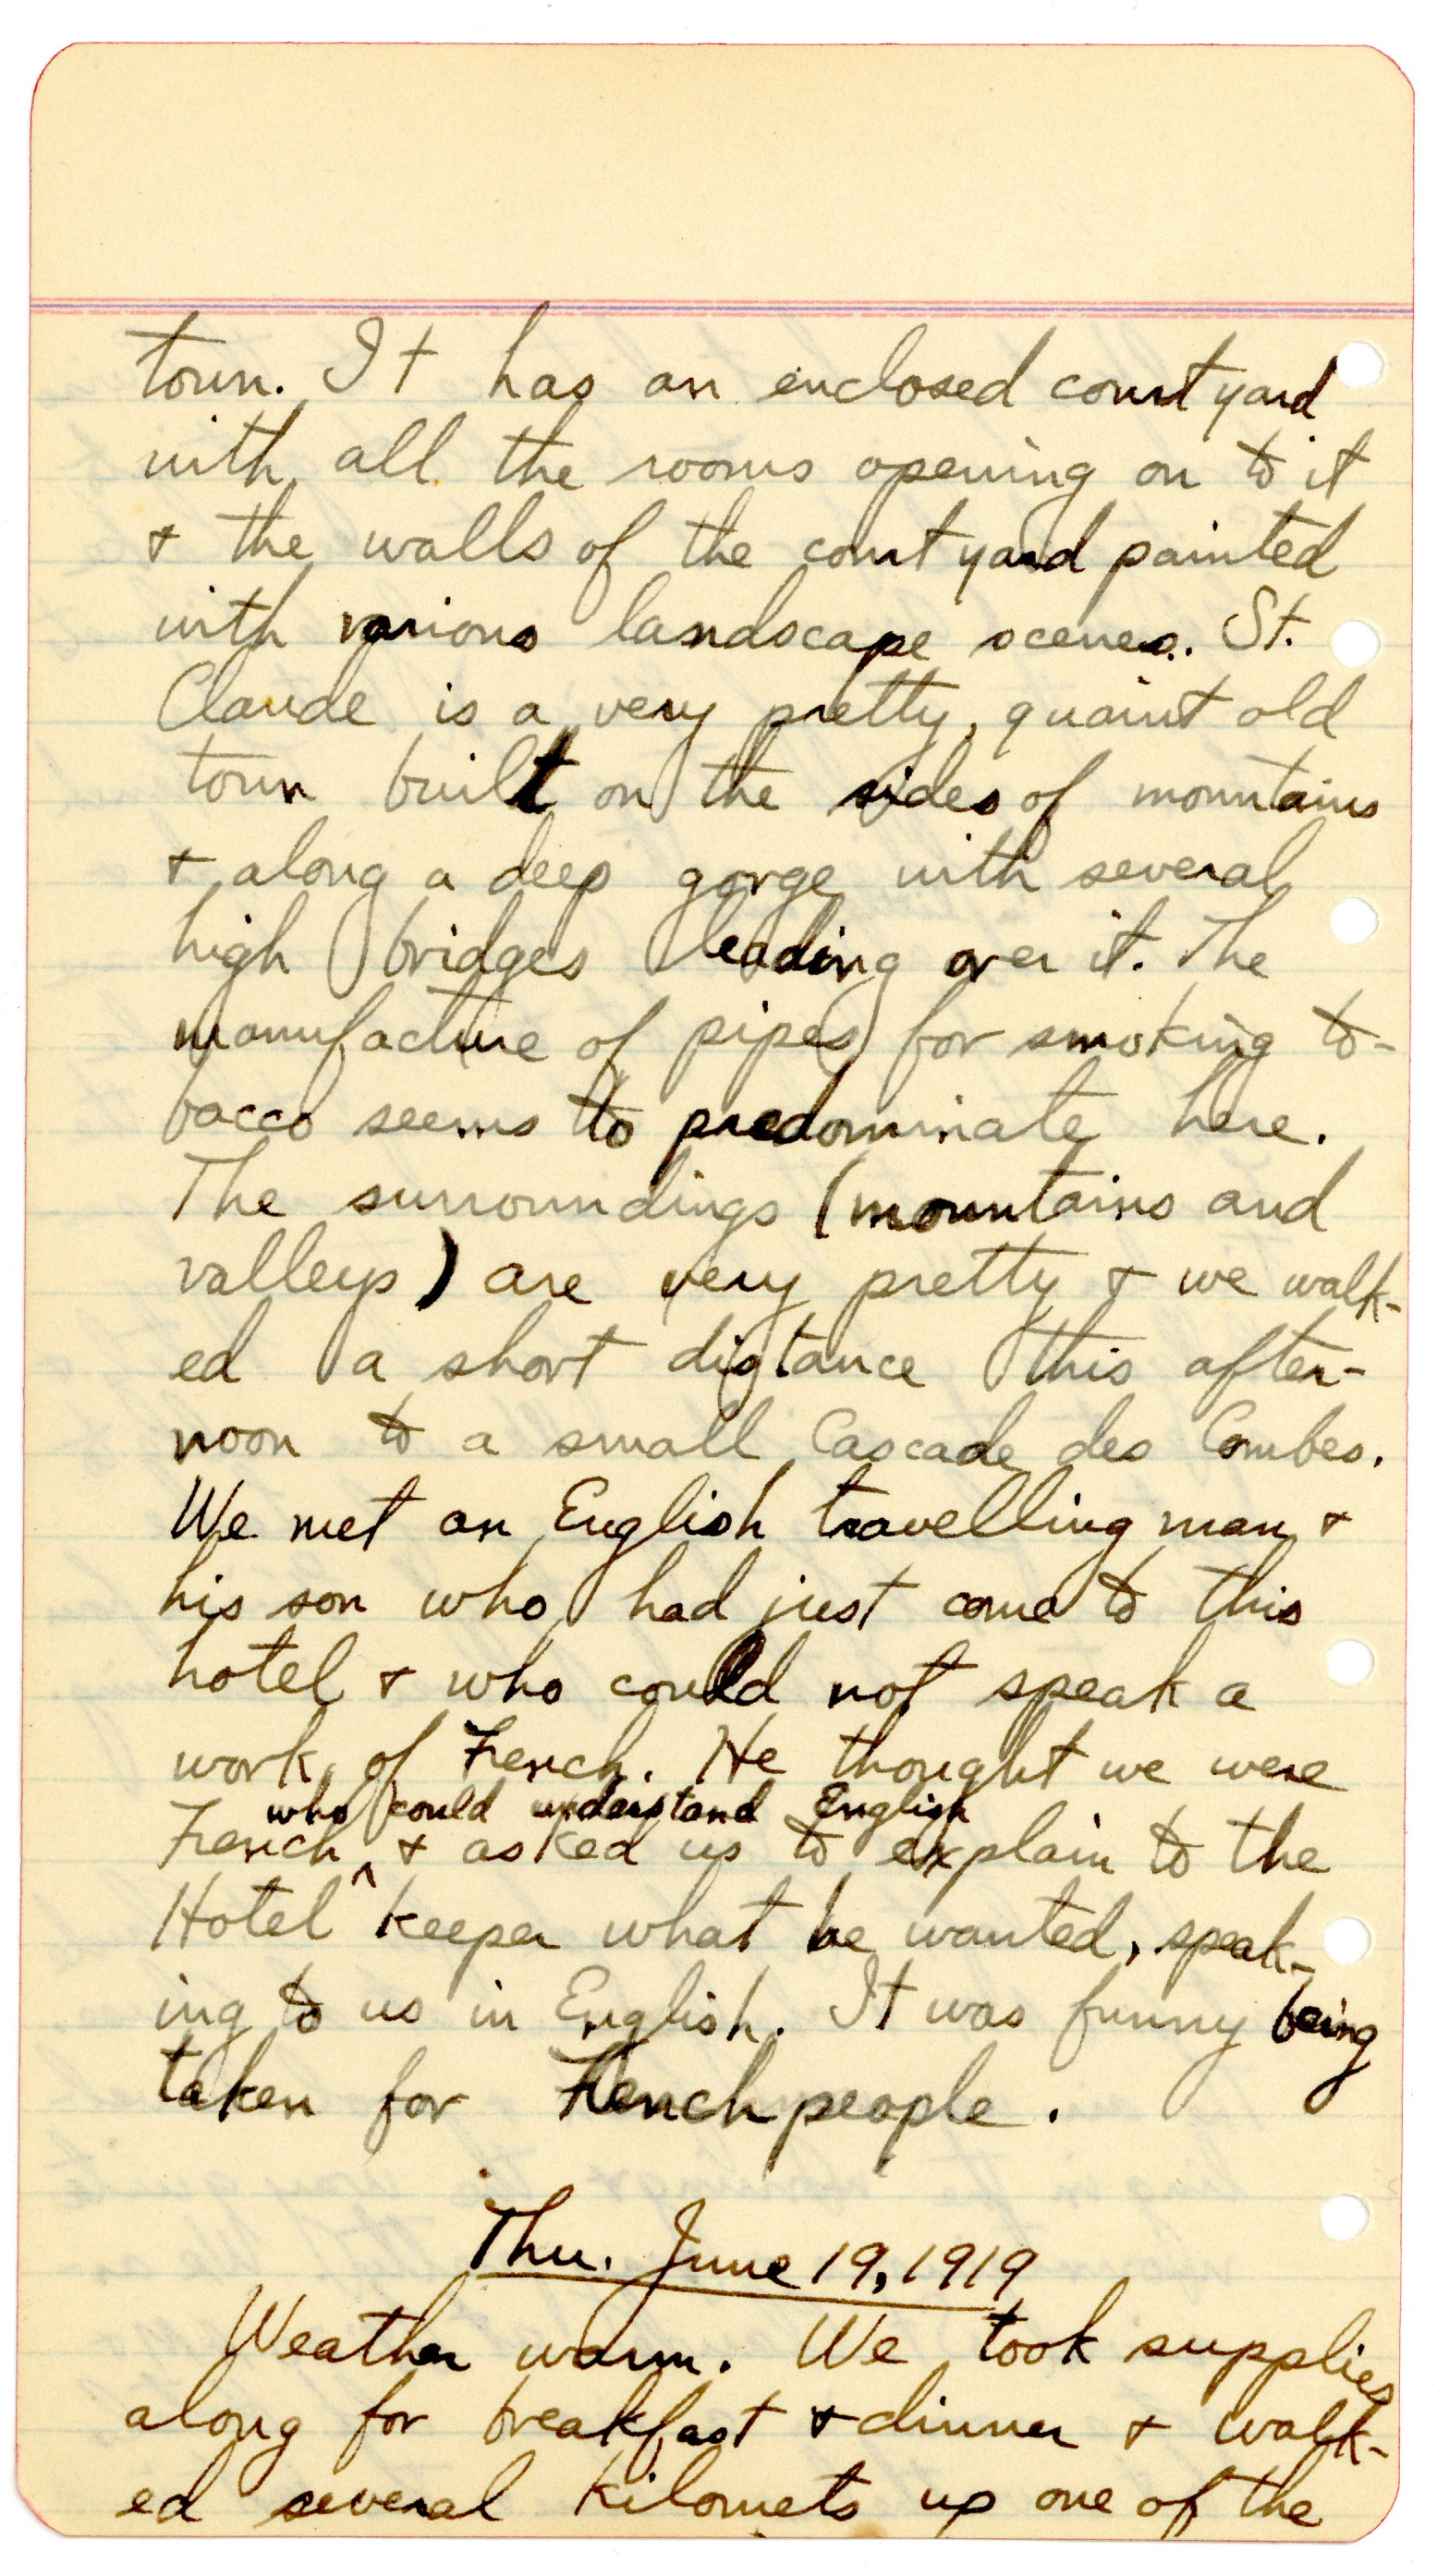 town. It has an enclosed court yard
with all the rooms opening on to it
+ the walls of the court yard painted
with various landscape scenes. St.
Claude is a very pretty, quaint old
town built on the sides of mountains
+ along a deep gorge with several
high bridges leading over it. The
manufacture of pipes for smoking to-
bacco seems to predominate here.
The surroundings (mountains and
valleys) are very pretty + we walk-
ed a short distance this after-
noon to a small Cascade des Combes.
We met an English travelling man +
his son who had just come to this
hotel + who could not speak a
work of French. He thought we were
who could understand English
French ^ + asked us to explain to the
Hotel keeper what he wanted, speak-
ing to us in English. It was funny being
taken for French people.
Thu. June 19, 1919
Weather warm. We took supplies
along for breakfast + dinner + walk-
ed several kilomets up one of the